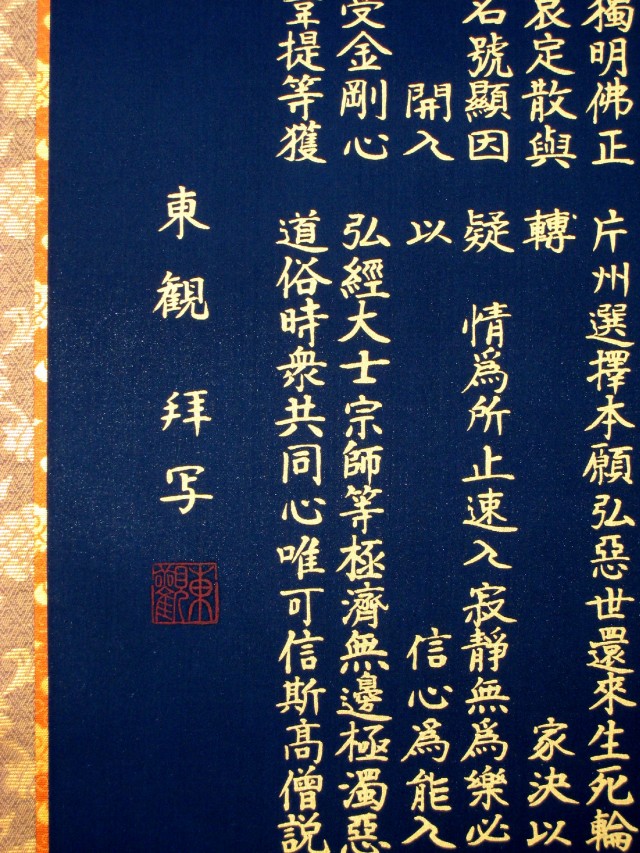 獨明佛正 片州選擇本願弘惡世還來生死輪
哀定散與 轉 家決以
名號顯因 疑 情爲所止速入寂靜無爲樂必
開入 以 信心爲能入
受金剛心 弘經大士宗師等極濟無邊極濁惡
韋提等獲 道俗時衆共同心唯可信斯髙僧説
東観 拝写
東觀